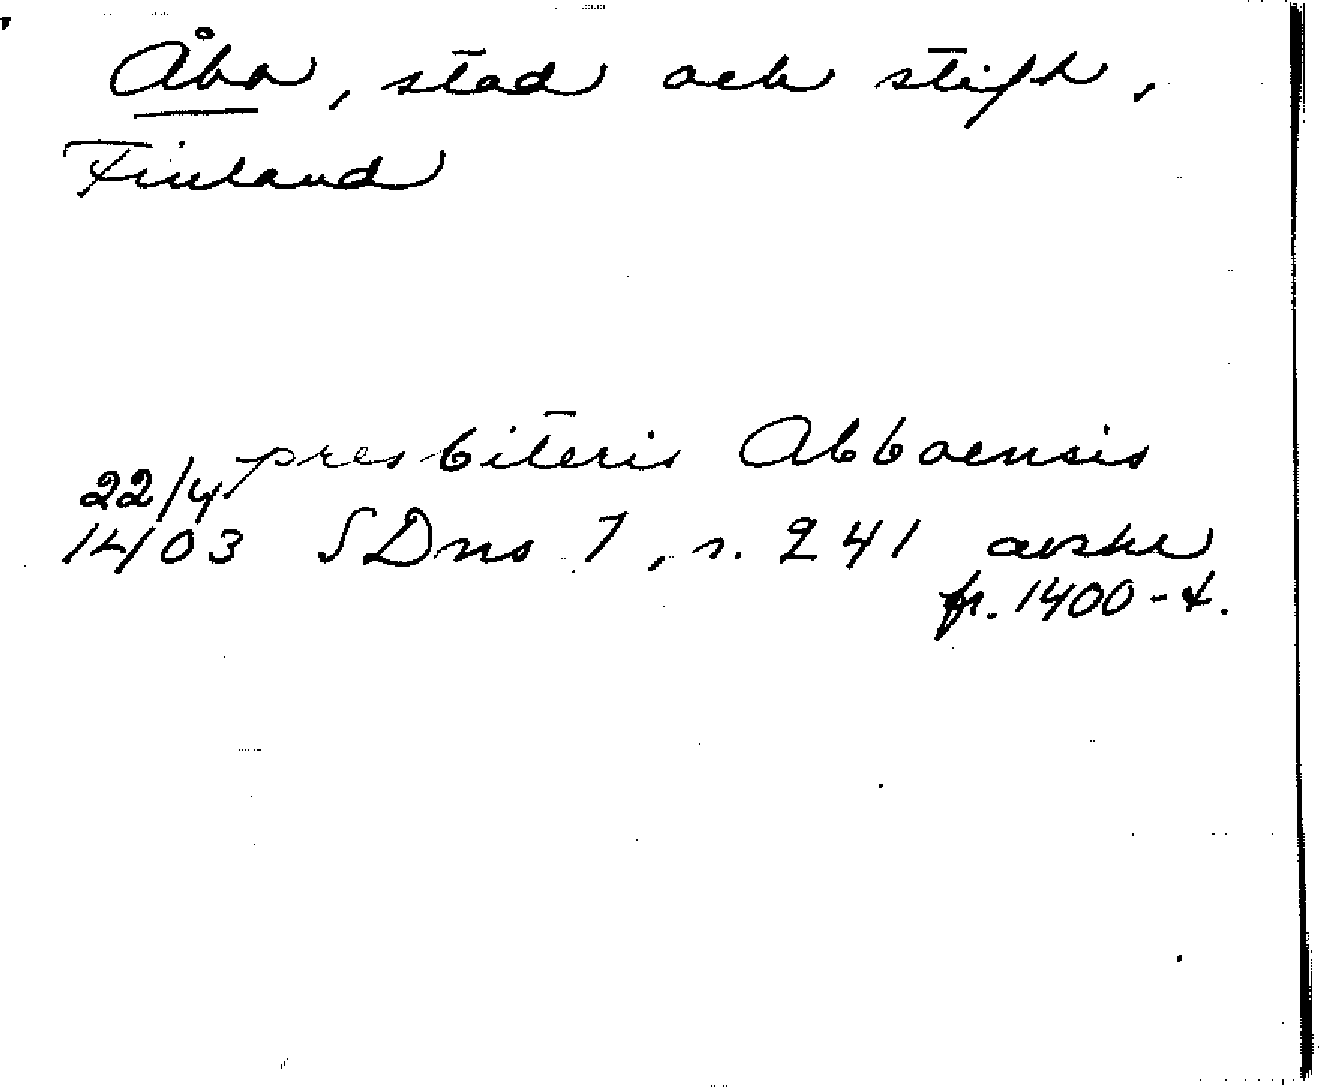 Åbo, stad och stift,
Finland
presbiteris Abboensis
22/4
1403 SDns 1, s. 241 avskr
fr. 1400-t.